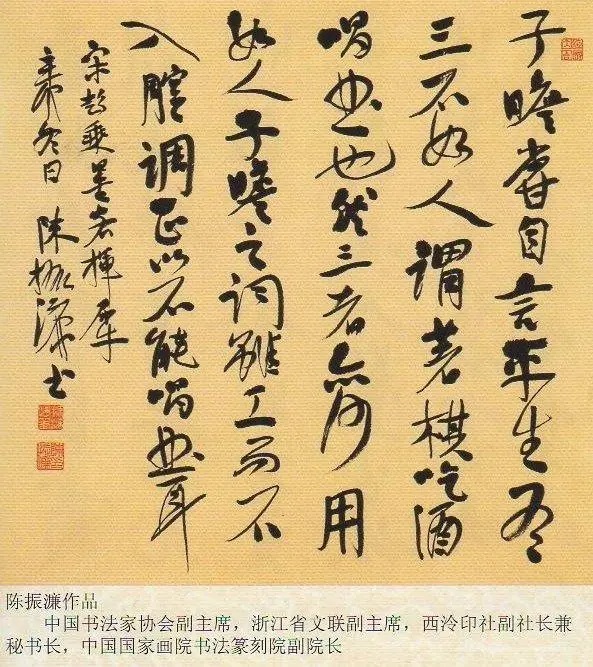 子瞻甞自言平生有
三不如人謂著棋吃酒
唱曲也然三者亦何用
如人子瞻之詞雖工而不
入腔調正以不能唱曲耳
宋彭乘墨客揮犀
冬日 陳振濂书
陈振濂作品
中国书法家协会副主席，浙江省文联副主席，西泠印社副社长兼
秘书长，中国国家画院书法篆刻院副院长